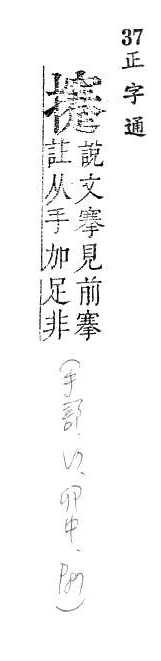 37 正字通
攓
說文搴見前搴
註从手加足非
(手部、卯中、